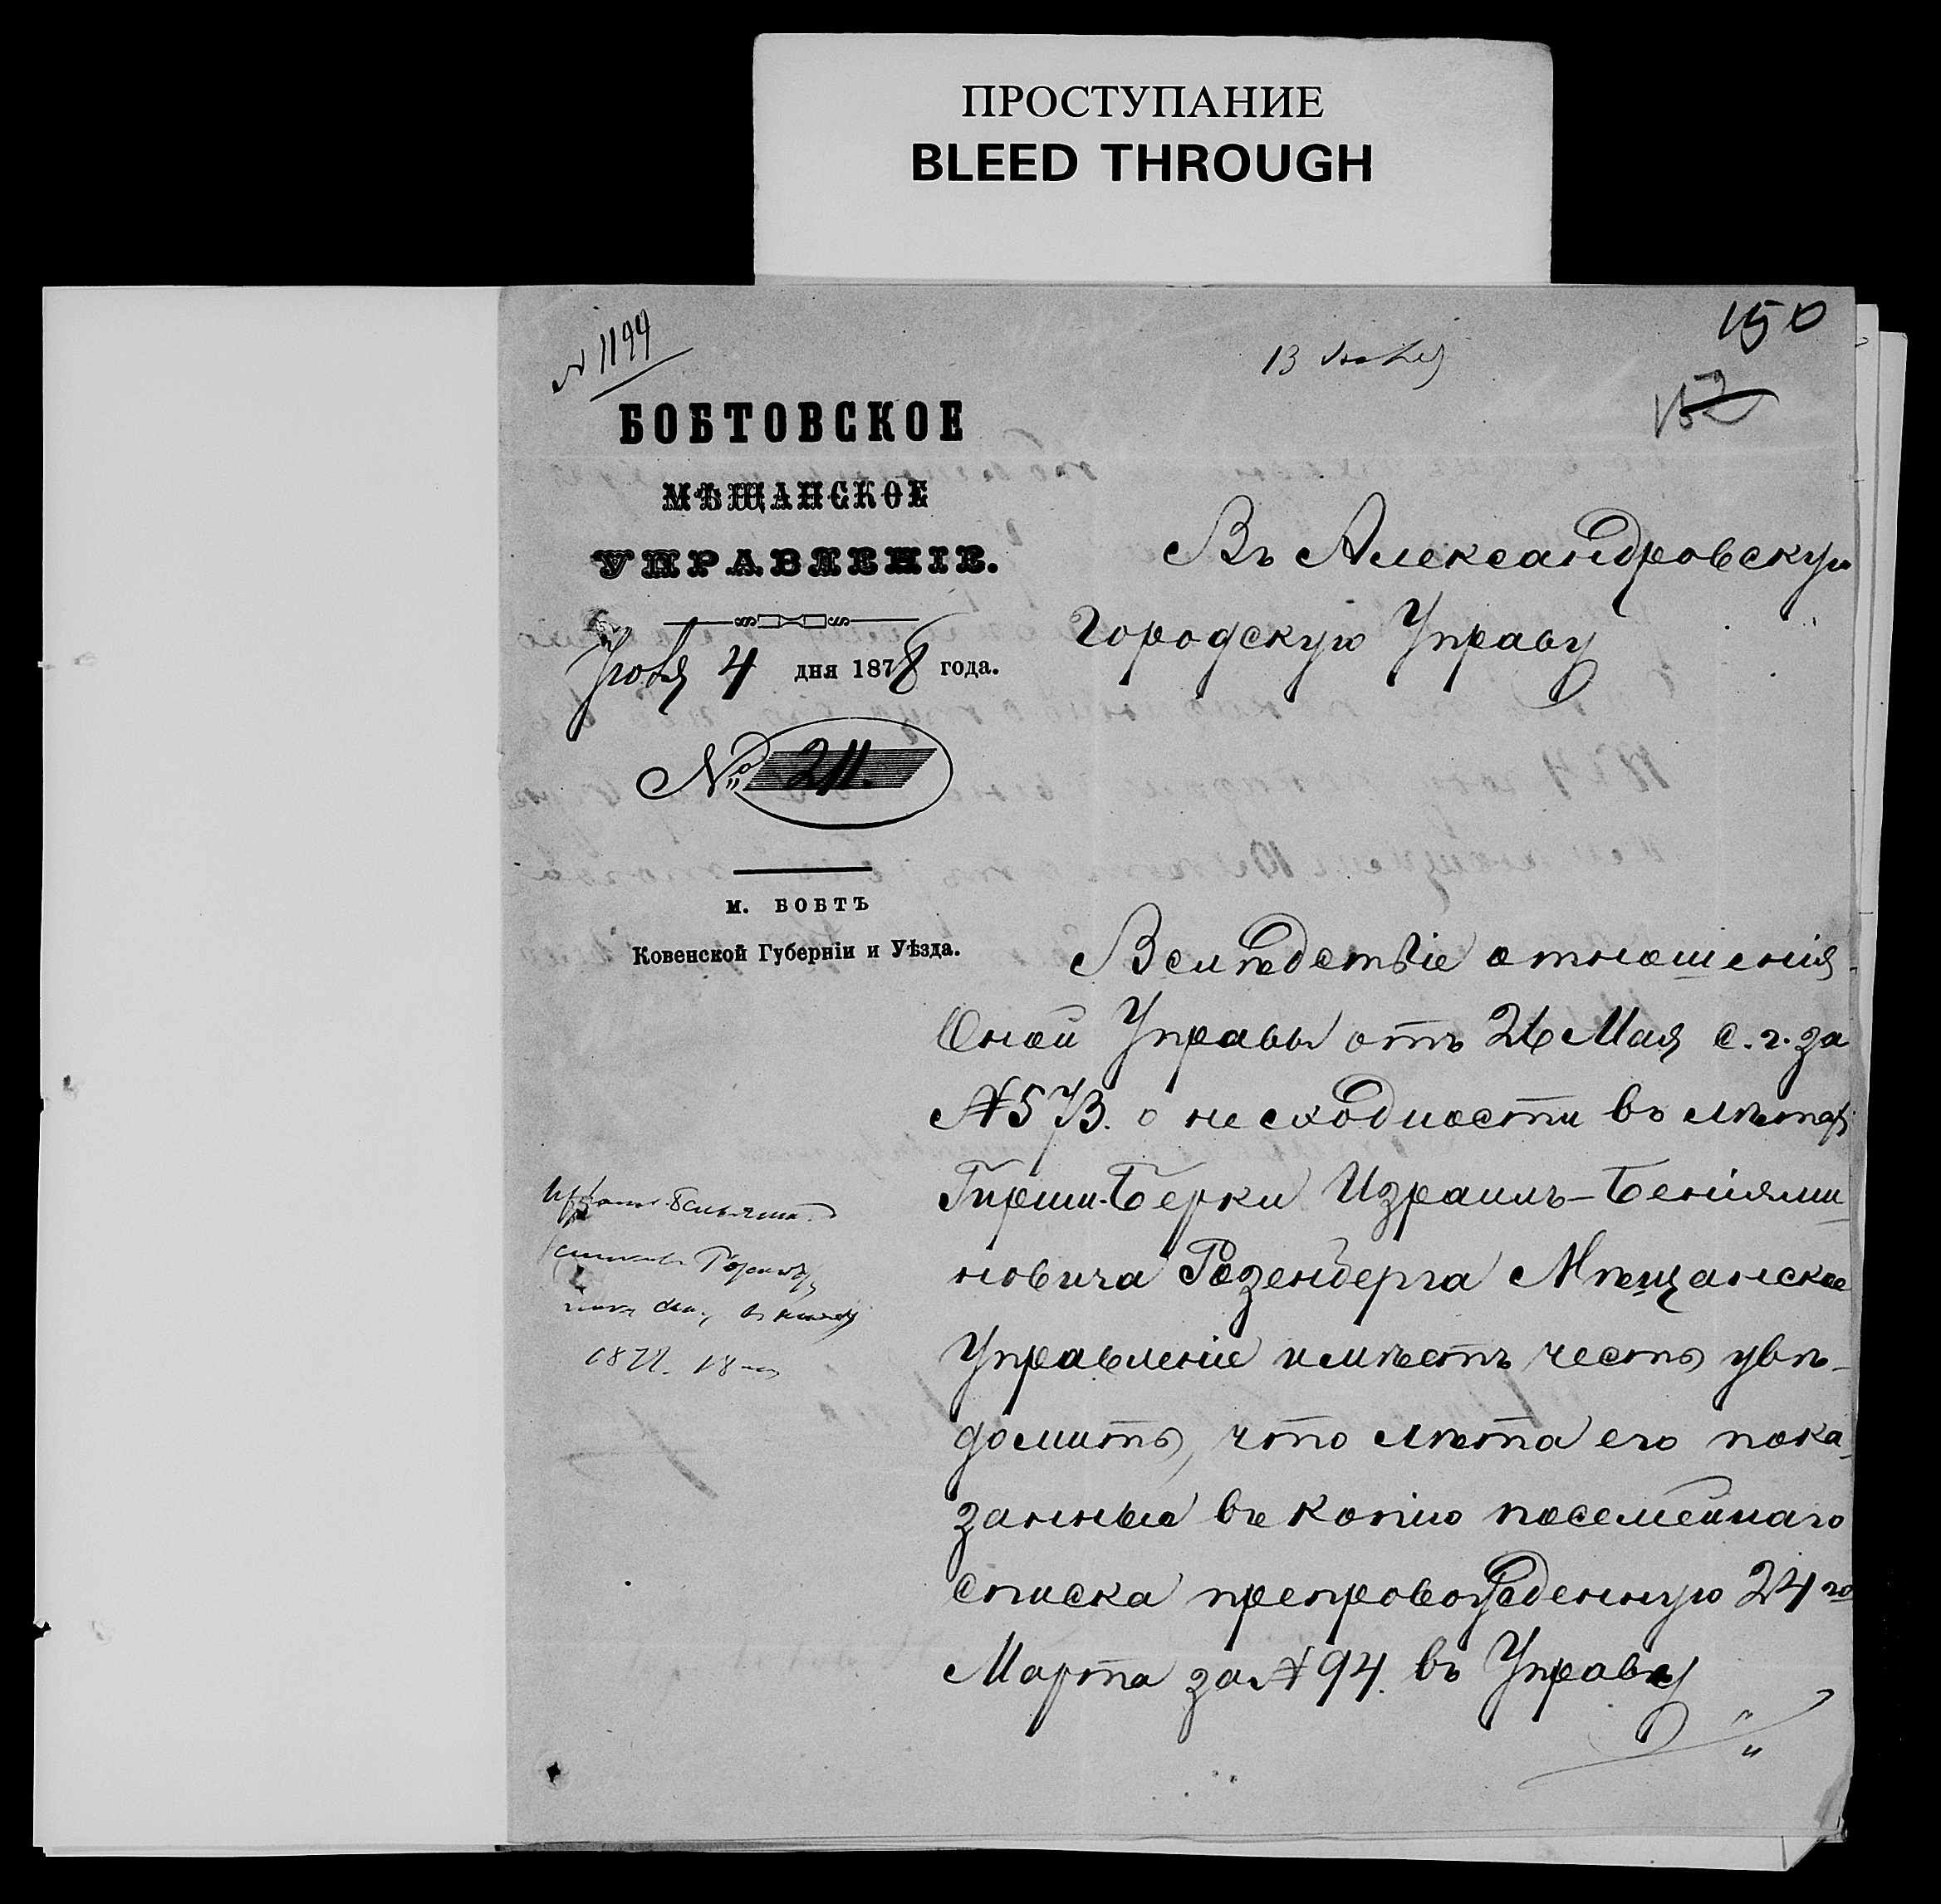 ПРОСТУПАНИЕ
BLEED THROUGH
150
152
N 1199
13 Іюня
БОБТОВСКОЕ
МѢЩАНСКОЕ
УПРАВЛЕНІЕ.
Іюня 4 дня 1878 года.
№ 211.
м. БОБТЪ
Ковенской Губерніи и Уѣзда.
Въ Александровскую
Городскую Управу
Вслѣдствіе отношенія
Оной Управы отъ 26 Мая с. г. за
N 573. о несходности въ лѣтахъ
Гирши-Берки Израиль-Беніями-
новича Розенберга Мѣщанское
Управленіе имѣетъ честь увѣ-
домить, что лѣта его пока-
занные въ копію посемейнаго
списка препровожденную 24го
Марта за N 94. въ Управу
1878